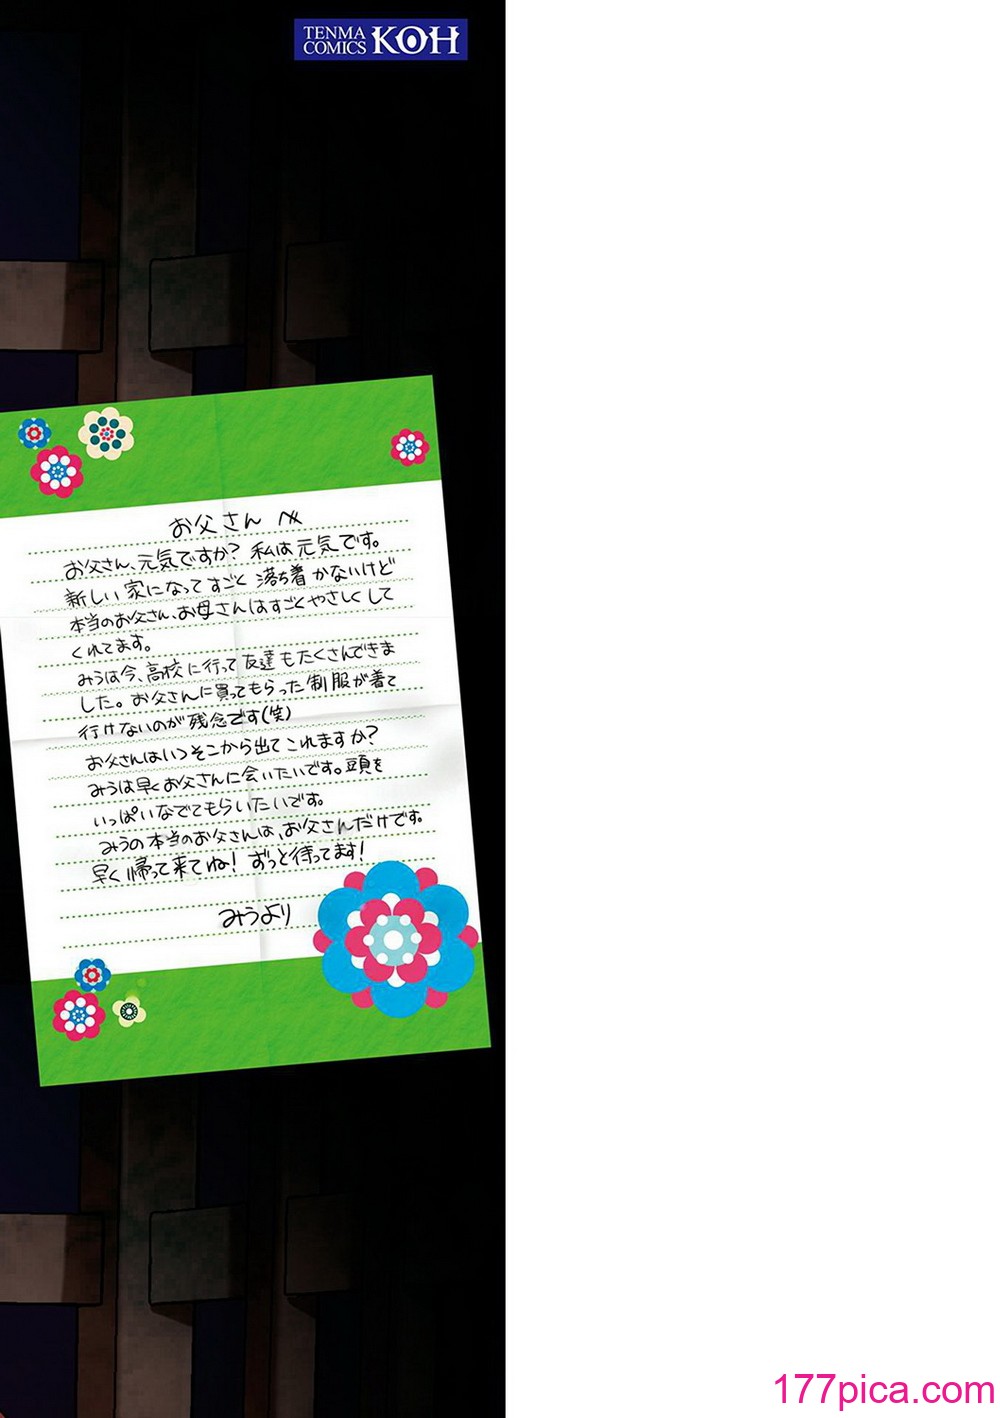 TENMA
COMICS KOH
お父さんへ
お父さん、元気ですか？ 私は元気です。
新しい家になってすごく落ち着かないけど
本当のお父さん、お母さんはすごくやさしくして
くれてます。
みうは今、高校に行って友達もたくさんできま
した。お父さんに買ってもらった制服が着て
行けないのが残念です(笑)
お父さんはいつそこから出てこれますか？
みうは早くお父さんに会いたいです。頭を
いっぱいなでてもらいたいです。
みうの本当のお父さんは、お父さんだけです。
早く帰って来てね！ずっと待ってます！
みうより
177pica.com